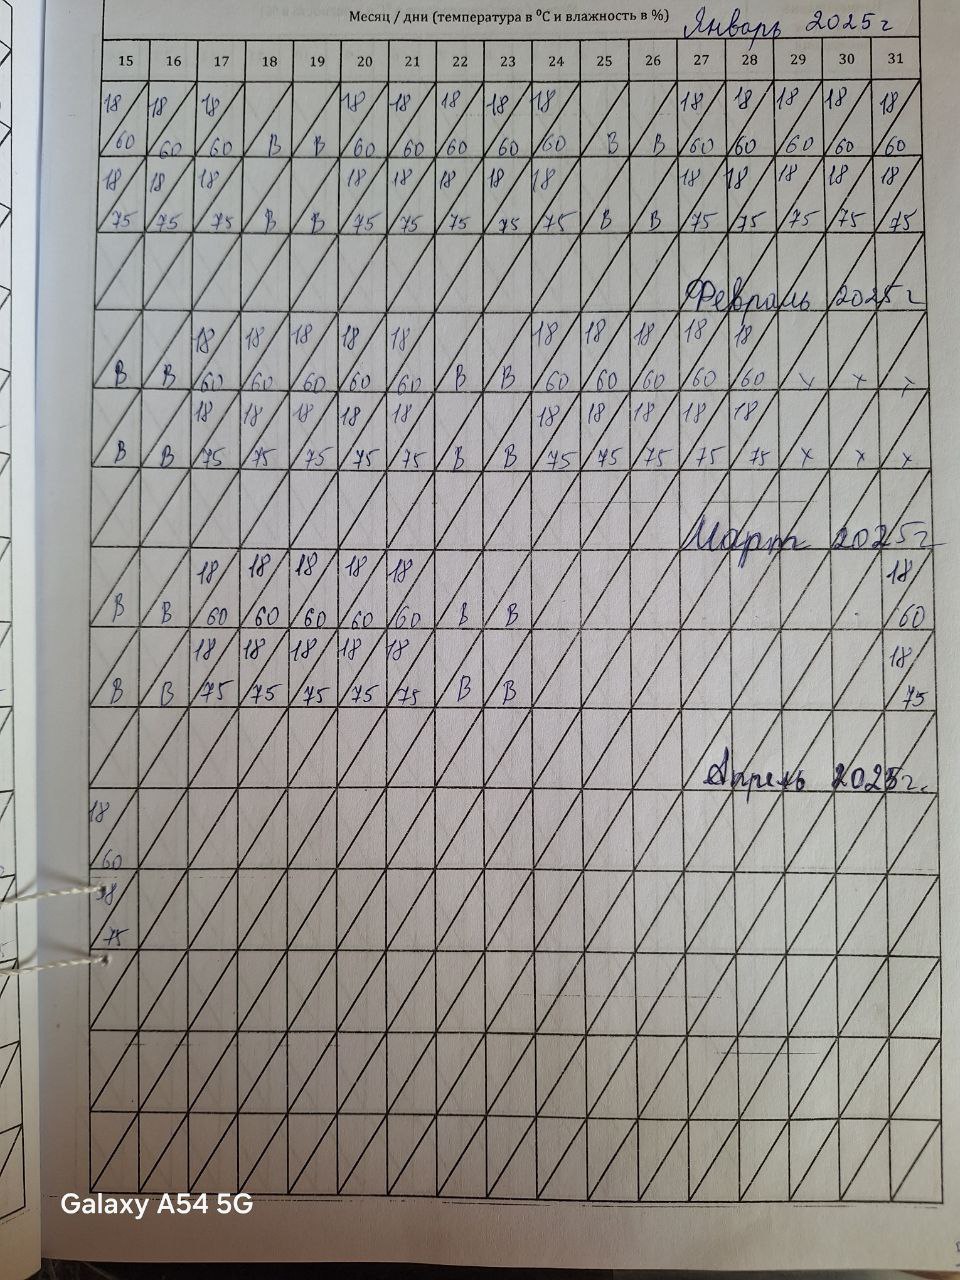 Месяц / дни (температура в ⁰С и влажность в %) Январь 2025г
15 16 17 18 19 20 21 22 23 24 25 26 27 28 29 30 31
18 18 18 18 18 18 18 18 18 18 18 18 18
60 60 60 В В 60 60 60 60 60 В В 60 60 60 60 60
18 18 18 18 18 18 18 18 18 18 18 18 18
75 75 75 В В 75 75 75 75 75 В В 75 75 75 75 75
Февраль 2025 г
18 18 18 18 18 18 18 18 18 18
В В 60 60 60 60 60 В В 60 60 60 60 60 х х х
18 18 18 18 18 18 18 18 18 18
В В 75 75 75 75 75 В В 75 75 75 75 75 х х х
Март 2025г
18 18 18 18 18 18
В В 60 60 60 60 60 В В 60
18 18 18 18 18 18
В В 75 75 75 75 75 В В 75
Апрель 2025г.
18
60
18
75
Galaxy A54 5G